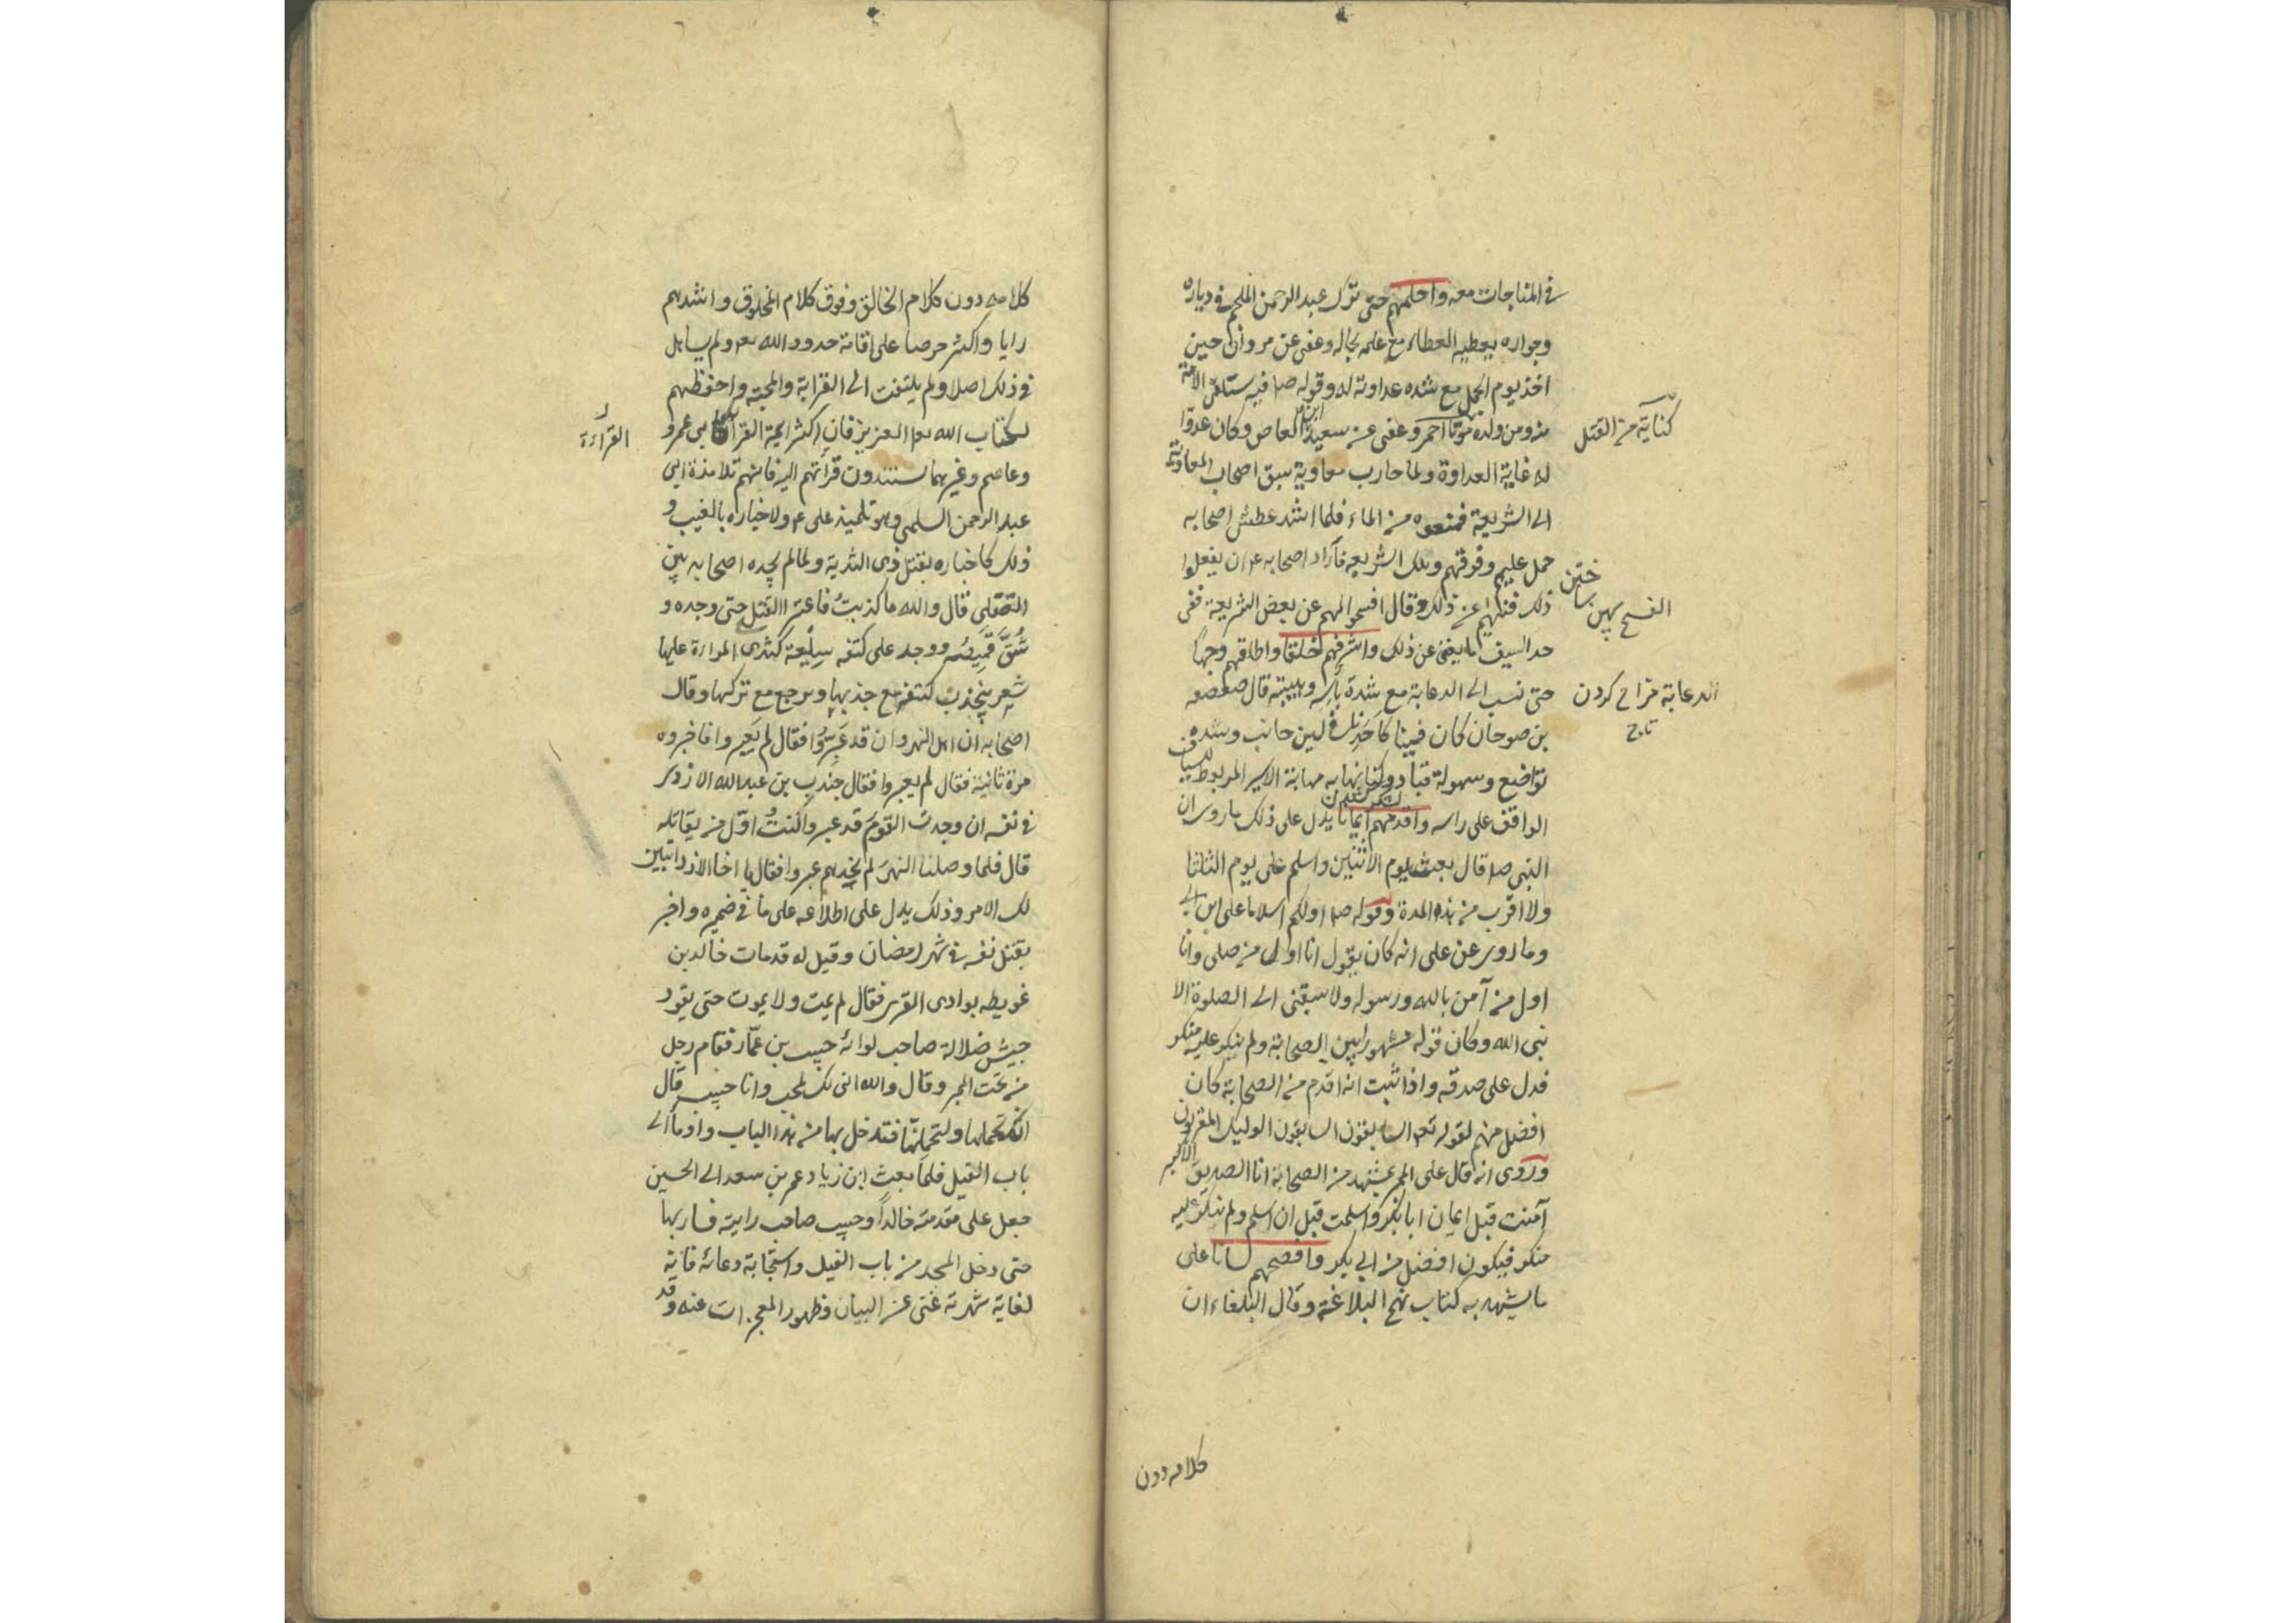 في المناجات معه واحلمهم حتى ترك عبد الرحمن الملجم في دياره
وجواره يعطيه العطاء مع علمه بحاله وعفى عن مروان حين
اخذ يوم الجمل مع شده عداوته له وقوله صا فيه ستلقى الامة
منه ومن ولده موتا احمر وعفى عن سعيد ابن العاص وكان عدوّا
كنايةٌ من القتل
له غاية العداوة ولما حارب معاوية سبق اصحاب المعاوية
الى الشريعة فمنعوه من الماء فلما اشد عطش اصحابه
حمل عليهم وفرقهم وملك الشريعه فاراد اصحابه ع ان يفعلوا
ذلك فنهاهم عن ذلك وقال افسحوا لهم عن بعض الشريعة ففى
الفسح پهن ساختن
حد السيف ما يغنى عن ذلك واشرفهم خلقا واطلقهم وجهاً
حتى نسب الى الدعابة مع شدة بأسِه وهيبته قال صعصعه
الدعابة مزاح كردن
تاج
بن صوحان كان فينا كاحدنا في لين جانب وشده
تواضع وسهولة قياد وكنا نهابه مهابة الاسير المربوط للسياف
الواقف على راسه واقدمهم ايمانا يدل على ذلك ما روى ان
النبى صا قال بعث يوم الاثنين واسلم على يوم الثلثا
ولا اقرب من هذه المدة وقوله صا اولكم اسلاما على ابن ابي
وما روى عن على انه كان يقول انا اول من صلى وانا
اول من آمن بالله ورسوله ولا سبقنى الى الصلوة الا
نبى الله وكان قوله مشهورا بين الصحابة ولم ينكر عليه منكر
فدل على صدقه واذا ثبت انه اقدم من الصحابة كان
افضل منهم لقوله تع السابقون السابقون اولئك المقربون
وروى انه قال على المنبر بمشهد من الصحابة انا الصديق الاكبر
آمنت قبل ايمان ابا بكر واسلمت قبل ان اسلم ولم ينكر عليه
منكر فيكون افضل من ابي بكر وافصحهم لسانا على
ما يشهد به كتاب نهج البلاغة وقال البلغاء ان
كلامه دون
كلامه دون كلام الخالق وفوق كلام المخلوق واشدهم
رايا واكثر حرصا على اقامة حدود الله تعا ولم يساهل
في ذلك اصلا ولم يلتفت الى القرابة والمحبته واحفظهم
لكتاب الله تعا العزيز فان اكثر ايمة القراءة كابى عمرو
القرآءة
وعاصم وغيرهما يستندون قرأتهم اليه فانهم تلامذة ابى
عبد الرحمن السلمى وهو تلميذ على ع ولاخباره بالغيب و
ذلك كاخباره بقتل ذى الثدية ولما لم يجده اصحابه بين
القتلى قال والله ما كذبتُ فاعتبر القتل حتى وجده و
شُقَّ قميصُه ووجد على كتفه سِلْعة كثدى المراءة عليها
شعر ينجذب كتفه مع جذبها ويرجع مع تركها وقال
اصحابه ان اهل النهروان قد عَبَرُوا فقال لم يَعبروا فاخبروه
مرة ثانية فقال لم يعبروا فقال جندب بن عبد الله الازدى
في نفسه ان وجدت القوم قد عبروا كنتُ اوّل من يقاتله
قال فلما وصلنا النهر لم نجدهم عبروا فقال يا اخا الازد اتبين
لك الامر وذلك يدل على اطلاعه على ما في ضميره واخبر
بقتل نفسه في شهر رمضان وقيل له قد مات خالد بن
غويطه بوادى القرى فقال لم يمت ولا يموت حتى يقود
جيش ضلالة صاحب لوائه حبيب بن عمّار فقام رجل
من تحت المنبر وقال والله انى لك لمحب وانا حبيب قال
اياك تحملها ولتحملنّها فتدخل بها من هذا الباب واومأ الى
باب الفيل فلما بعث ابن زياد عمر بن سعد الى الحسين
جعل على مقدمته خالداً وحبيب صاحب رايته فسار بها
حتى دخل المسجد من باب الفيل واستجابة دعائه فانه
لغاية شهرته غنى عن البيان وظهور المعجزات عنه وقد